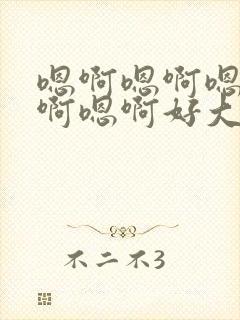 嗯啊嗯啊嗯
啊嗯啊好大
不二不3